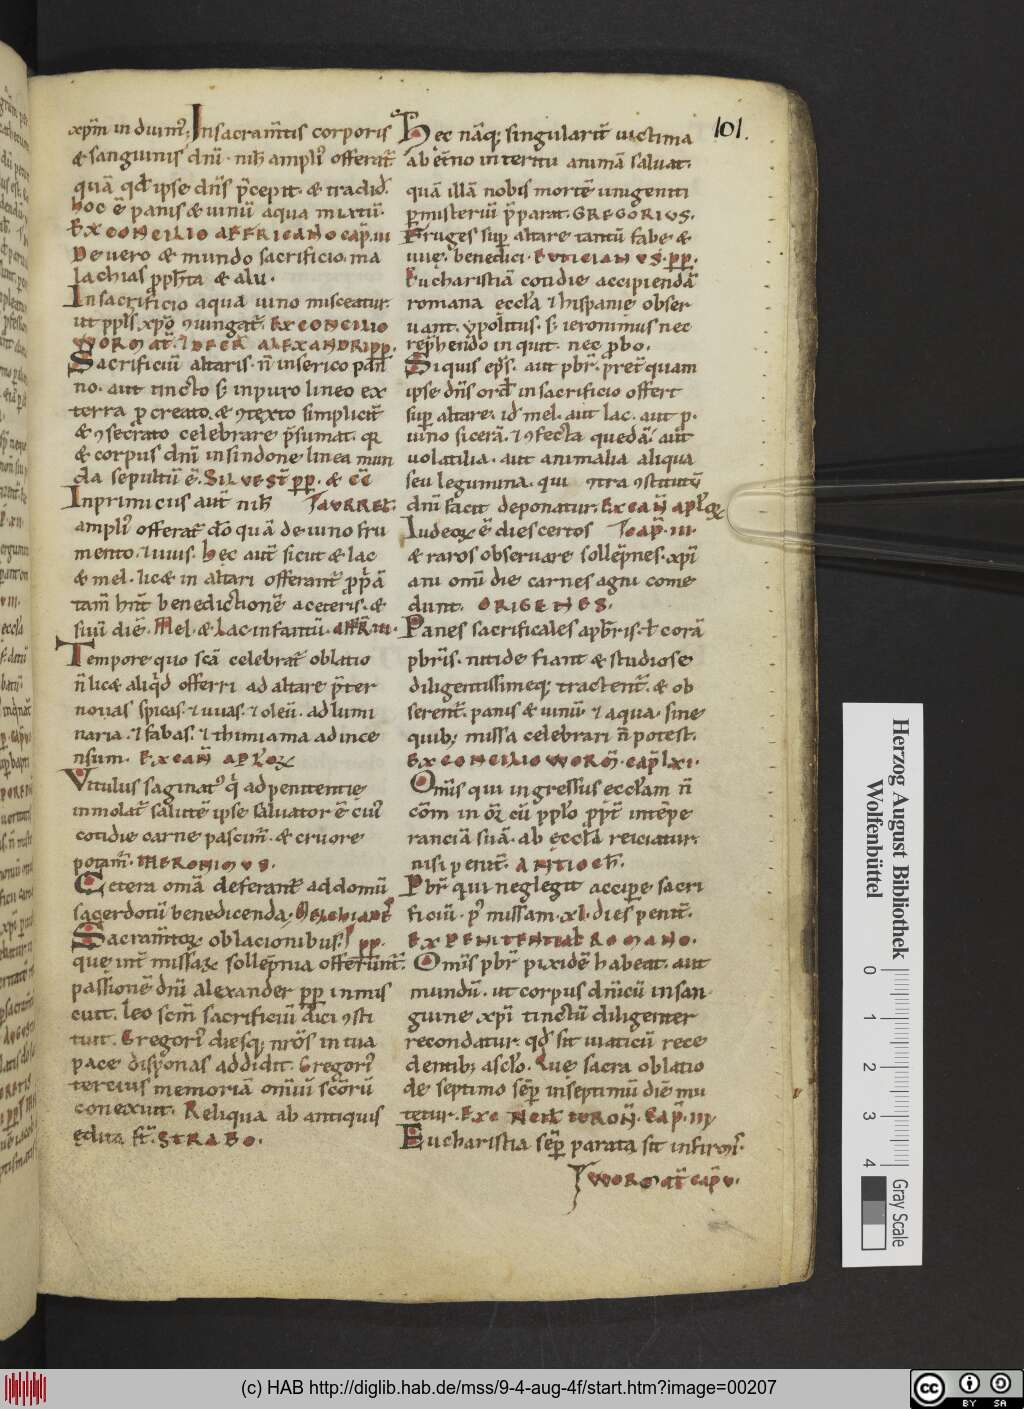 101.
xp̄m in dium̄; In sacram̄tis corporis
& sanguinis dn̄i · nih̄ ampli' offerat̄
quā qđ ipse dn̄s p̄cepit · & tradiđ.
hoc ē panis & uinū aqua mixtū.
Ex CONCILIO AFFRICANO cap̄. iii
De uero & mundo sacrificio · ma
lachias ꝓph̄ta & alii ·
In sacrificio aqua uino misceatur.
ut ppl̄s xp̄o ꝯiungat̄. Ex CONCILIO
WORMAT̄. ⁊ DECR̄ ALEXANDRI pp̄.
Sacrificiū altaris · n̄ in serico pan
no · aut tincto sꝫ in puro lineo ex
terra ꝓcreato · & ꝯtexto simplicit̄
& ꝯsecrato celebrare p̄sumat. qr̄
& corpus dn̄i in sindone linea mun
da sepultū ē. SILVEST̄ pp̄. & CĒ
In primicius aut̄ nih̄ TAURRET.
ampli' offerat̄ đo quā de uino fru
mento · ⁊ uuis · hec aut̄ sicut & lac
& mel · lic& in altari offerant̄ ꝓp̄a
tam̄ hn̄t benedictionē a ceteris · &
suū diē · Mel · & Lac infantū. AFFR̄. iii.
Tempore quo sc̄a celebrat̄ oblatio
n̄ lic& aliq̄d offerri ad altare p̄ter
nouas spicas · ⁊ uuas · ⁊ oleū · ad lumi
naria · ⁊ fabas · ⁊ thimiama ad ince
nsum. Ex CAN̄ APL'Oꝝ
Vitulus saginat' q̄ ad penitentie
inmolat̄ salutē ipse saluator ē cui'
cotidie carne pascim̄. & cruore
potam̄. IHERONIMUS.
Cetera om̄a deferant̄ ad domū
sacerdotū benedicenda.
Sacram̄toꝝ oblacionibus. pp̄.
que int̄ missaꝝ sollep̄nia offerunt̄.
passionē dn̄i alexander pp̄ inmis
cuit. Leo scm̄ sacrificiū đici ꝯsti
tuit. Gregori' diesqꝫ nr̄os in tua
pace disponas addidit. Gregori'
tercius memoriā om̄iū sc̄orū
conexuit. Reliqua ab antiquis
ędita st̄. STRABO.
Hec nāqꝫ singularit̄ uictima
ab et̄no interitu animā saluat.
quā illā nobis mortē unigeniti
ꝑ misteriū p̄parat. GREGORIUS.
Fruges suꝑ altare tantū fabe &
uuę. benedici. EUTICIANUS. pp̄.
Eucharistiā cotidie accipiendā
romana eccl'a ⁊ hispanie obser
uant. ypolitus · sꝫ ieronimus nec
rep̄hendo inquit. nec ꝓbo.
Siquis ep̄s. aut pbr̄. p̄t quam
ipse dn̄s ord̄ in sacrificio offert
suꝑ altare. id̄ mel. aut lac. aut ꝓ.
uino sicerā. ⁊ ꝯfecta quedā. aut̄
uolatilia. aut animalia aliqua
seu legumina. qui ꝯtra ꝯstitutū
dn̄i facit deponatur. Ex CAN̄ APL'Oꝝ
Iudeoꝝ ē dies certos CAP̄. III.
& raros obseruare sollep̄nes. xp̄i
ani om̄i die carnes agni come
dunt. ORIGENES.
Panes sacrificales ap̄bris. ꝉ corā
pbr̄is. nitide fiant & studiose
diligentissimeqꝫ tractent̄. & ob
serent̄. panis & uinū · ⁊ aqua · sine
quibꝫ missa celebrari n̄ potest.
Ex CONCILIO WORM̄. CAP̄. lxi.
Om̄is qui ingressus eccl'am n̄
cōm in or̄. cū ppl'o ꝓpt̄ intēpe
ranciā suā. ab eccl'a reiciatur.
nisi penit̄. ANTIOCH̄.
Pbr̄ qui neglegit accipere sacri
ficiū · p' missam · xl. dies penit̄.
Ex PENITENTIAL' ROMANO.
Om̄is pbr̄ pixidē habeat. aut
mundū. ut corpus dn̄icū in san
guine xp̄i tinctū diligenter
recondatur. qđ sit uiaticū rece
dentibꝫ a scl'o. Que sacra oblatio
de septimo sēꝑ in septimū diē mu
tetur. Ex CONCIL' WORM̄. CAP̄. iii.
Eucharistia sēꝑ parata sit infirm'.
WORMAT̄ CAP̄ V.
Herzog August Bibliothek
Wolfenbüttel
0 1 2 3 4
Gray Scale
(c) HAB http://diglib.hab.de/mss/9-4-aug-4f/start.htm?image=00207
cc BY SA